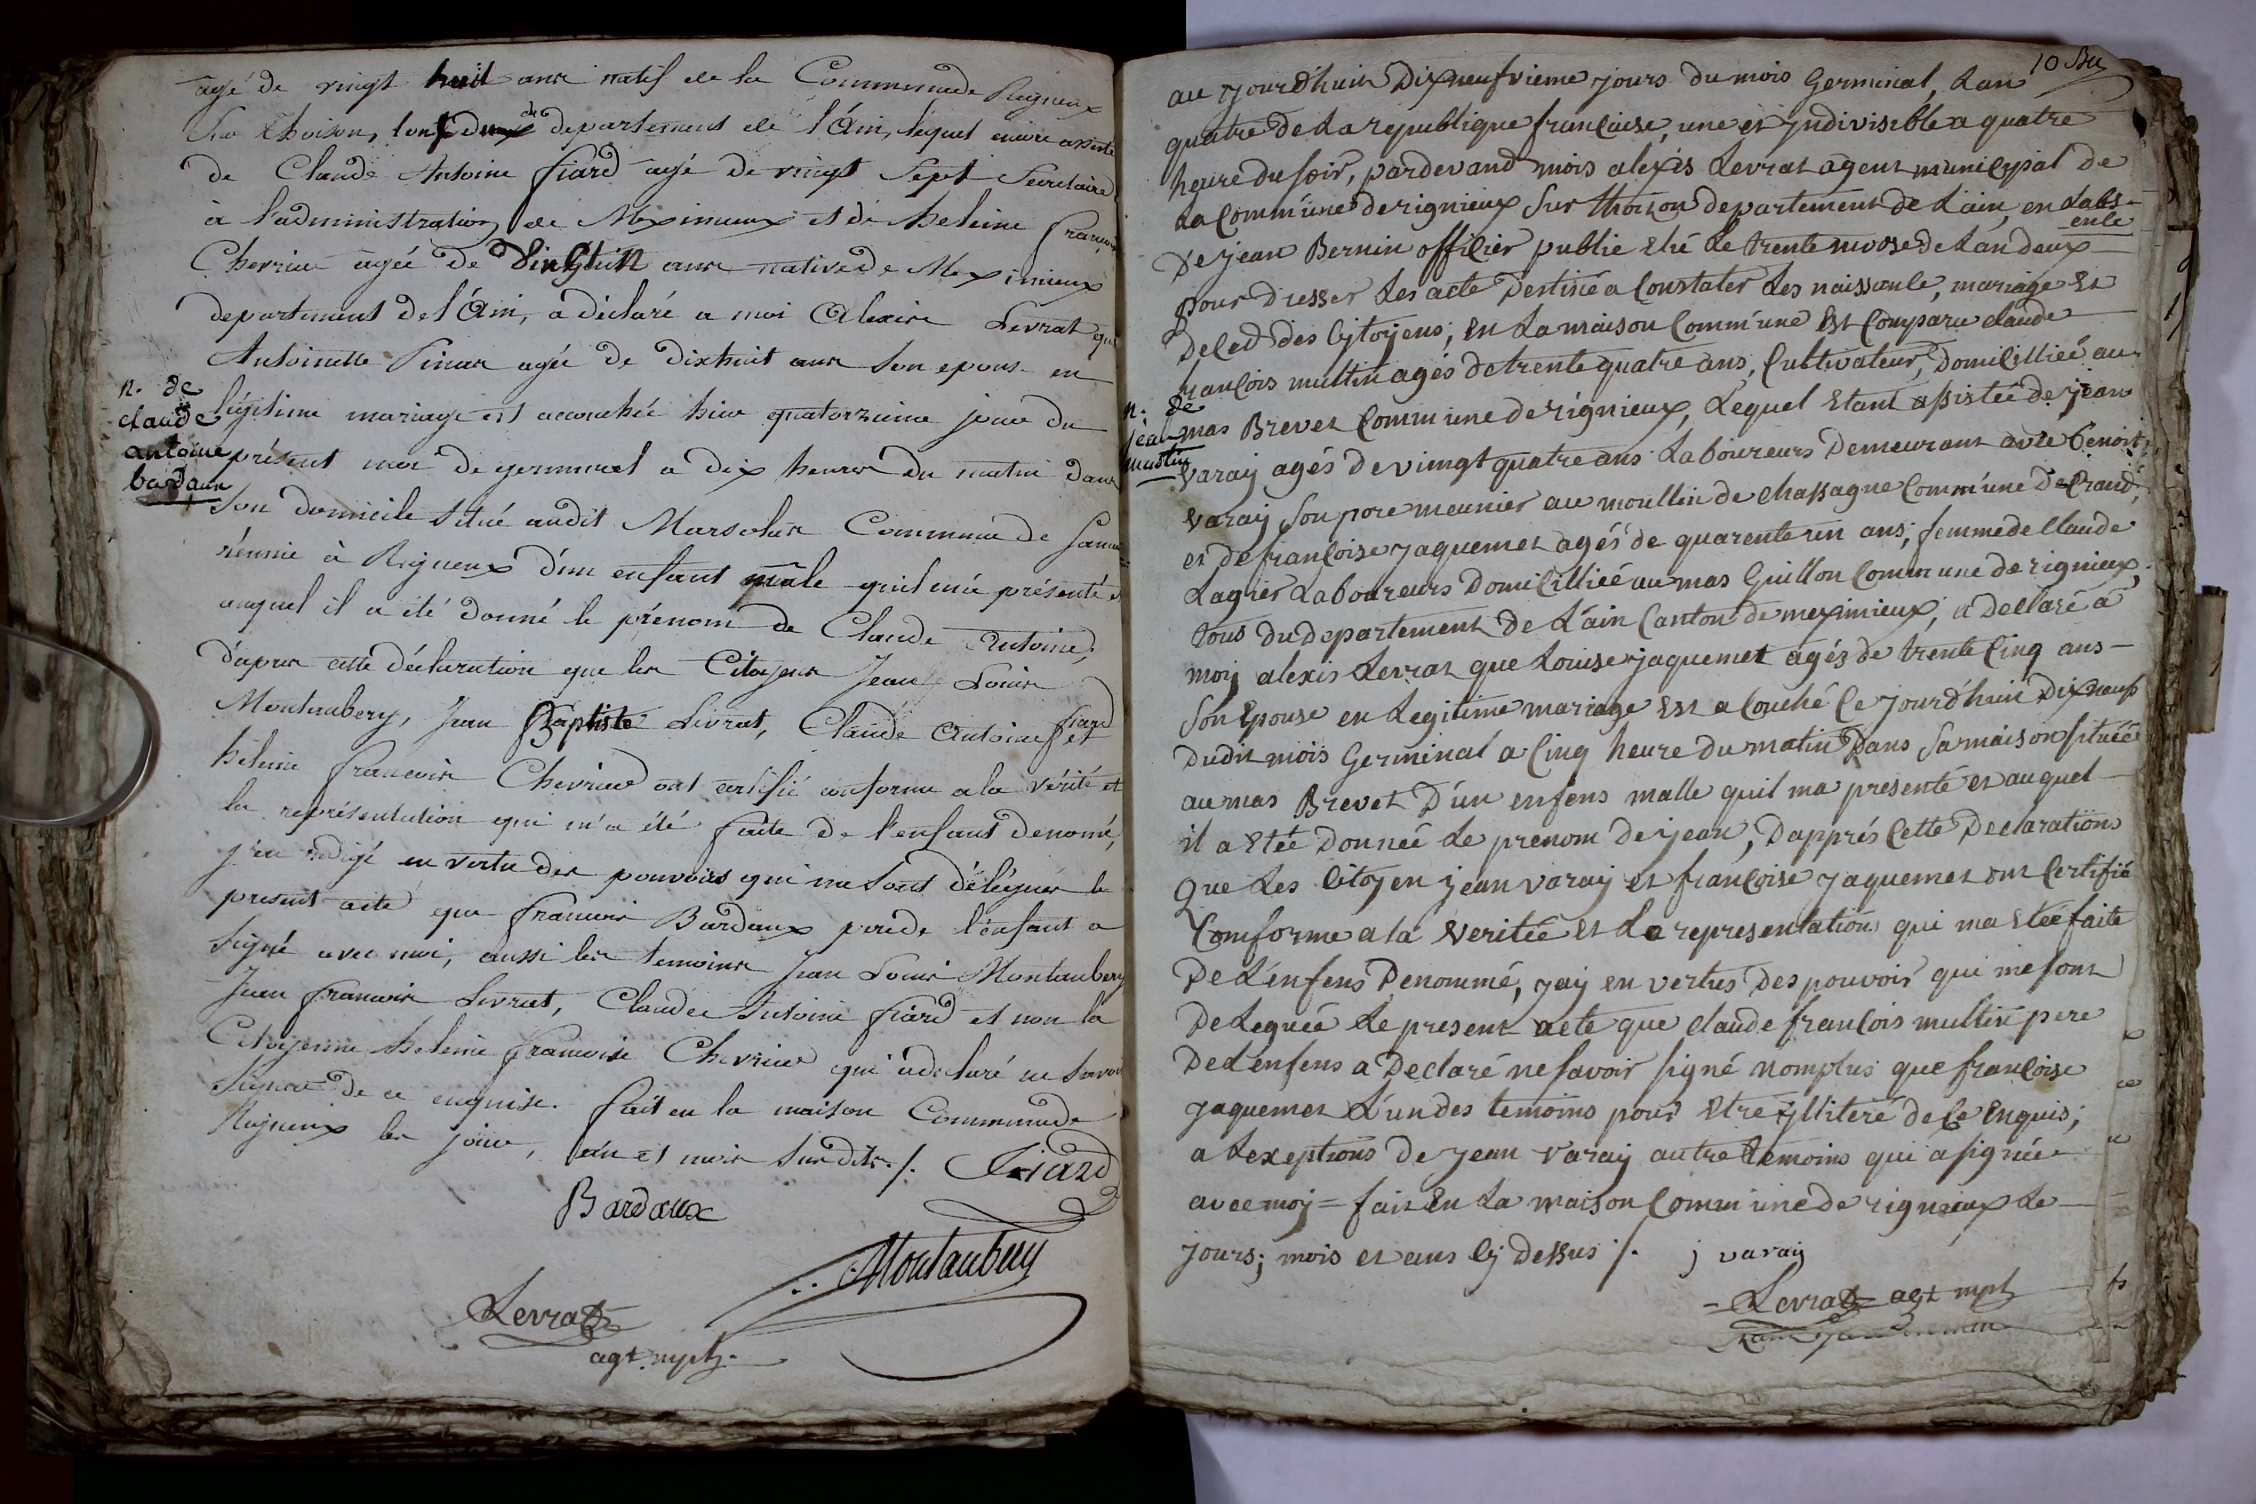 agé de vingt huit ans natif de la Commune de Rigneux
Sur Choison, tous deux du departement de l'Ain, lequel encore assisté
de Claude Antoine fiard agé de vingt Sept Secretaire
à l'administration de Meximieux et de heleine francoise
Chevrier agée de Vingt un ans native de Meximieux
departement de l'Ain, a déclaré a moi Alexis Levrat que
Antoinette agée de dixhuit ans Son epouse en
n. de
claude
antoine
bardaux
légitime mariage est accouchée hier quatorzieme jour du
présent mois de germinal a dix heures du matin dans
Son domicile situé audit Marsolas Commune de
réunie à Rigneux d'un enfant mâle quil m'a présenté et
auquel il a été donné le prénom de Claude Antoine,
d'apres cette déclaration que les Citoyens Jean Louis
Montaubery, Jean Baptiste Livrat, Claude Antoine fiard et
héleine francoise Chevrier ont certifié conforme a la vérité et
la représentation qui m'a été faite de l'enfant denomé,
j'ai redigé en vertu des pouvoirs qui me sont délégués le
present acte que francois Bardaux pere de l'enfant a
Signé avec moi, aussi les temoins Jean Louis Montaubery
Jean francois Livrat, Claude Antoine fiard et non la
Citoyenne heleine francoise Chevrier qui a déclaré ne savoir
Signer de ce enquise. fait en la maison Commune de
Rigneux les jour, an et mois susdits ./. Fiard
Bardaux
Montaubery
Levrat
agt. mpl.
10 Bu
au jourdhuit Dixneufvieme jours du mois Germinal, Lan
quatre de La republique francaise, une et yndivisible a quatre
heure du soir, pardevand mois alexis Levrat agent municipal de
La Commune de rignieux Sur thoison departement de Lain, en Labs-
ence
De jean Bernin officier public Elié Le trente nivose de Lan deux
pour dresser Les acte Destinéé a Constater Les naissance, mariage Et
Deced des Cytoyens; En La maison Commune Est Comparu claude
francois multin agés de trente quatre ans, Cultivateur, Domicilliéé au
n. de
jean
mustin
mas Brevet Commune de rignieux, Lequel Etant assistéé de jean
varay agés de vimgt quatre ans Laboureurs Demeurant avec benoit
varay Son pere meunier au moullin de chassagne Commune De Crand,
et de francoise jaquemet agés de quarente un ans; femme de claude
Lagrier Laboureurs Domicilliéé au mas Guillon Commune de rignieux,
tous du departement de Lain Canton de meximieux, a Declaré a
moy alexis Levrat que Louise jaquemet agés de trente Cinq ans
Son Epouse en Legitime mariage Est a Couché Ce jourdhuit Dixneuf
Dudit mois Germinal a Cinq heure du matin Dans Sa maison Situéé
au mas Brevet D'un enfens malle quil ma presenté et au quel
il a Etéé Donnéé Le prenom de jean, Dapprés Cette Declarations
Que Les Citoyen jean varay et francoise jaquemet ont Certifié
Comforme a la veritéé Et La representations qui ma Etéé faite
De L'enfens Denommé, jay en vertus Des pouvoir qui me sont
Deleguéé Le present acte que claude francois multin pere
De L'enfens a Declaré ne savoir signé nomplus que francoise
jaquemet L'un des temoins pour Etre yllitere de Ce Enquis;
a Lexeptions De jean varay autre temoins qui a signéé
avec moy = fait En La maison Commune de rignieux Le
jours; mois et ans Cy Dessus ./. j varay
= Levrat agt mpl